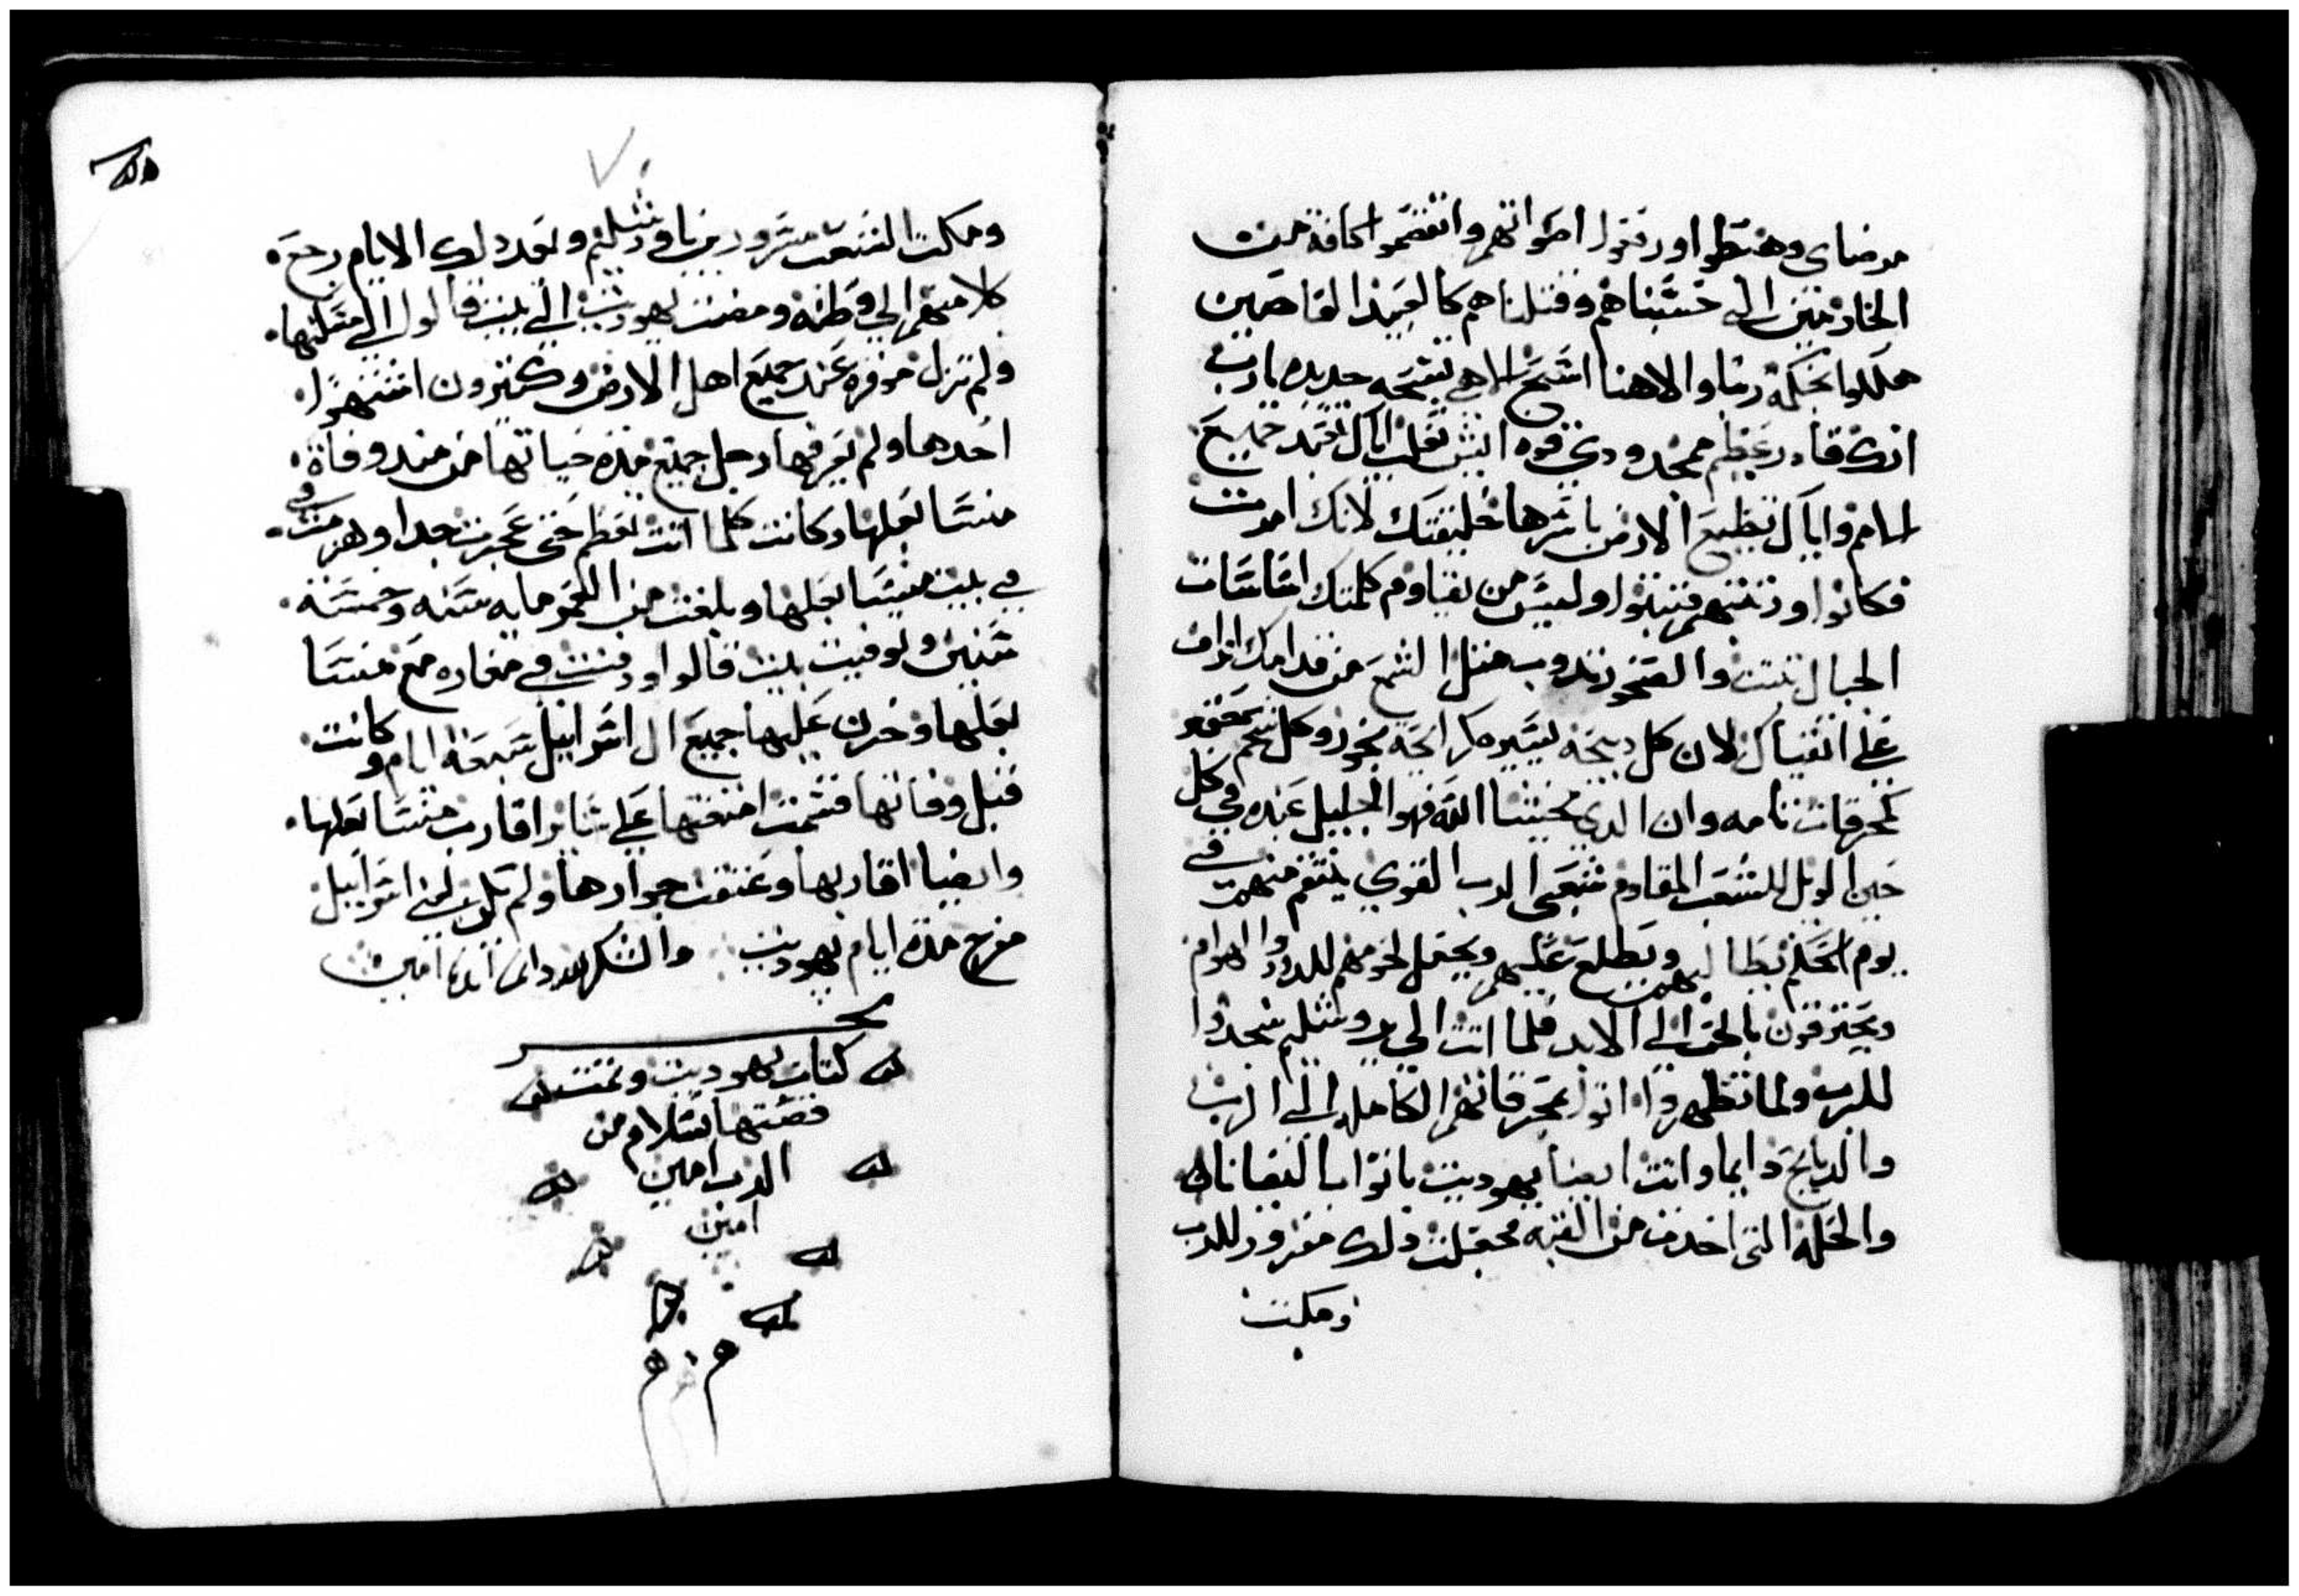 مرضاي وهبطوا ورفعوا اصواتهم وانفضموا كافة من
الخادمين الى خشبناهم وقتلناهم كالعبيد القاصين
هللوا بحكمة ربنا والاهنا اسبح الاهي تسبحه جديده يارب
انك قادر عظيم ممجد ودي قوه ليس تغلب اياك تعبد جميع
الامم واياك تطيع الارض باسرها خليقتك لانك امرت
فكانوا وزعتهم فتبتوا وليس من يقاوم كلمتك اساسات
الجبال والصخور تدوب متل الشمع من قدامك انت
علي اتقياك لان كل دبيحه يسير كرايحة بخور وكل شحم
كمحرقات تامه وان الدي يخشا الله فهو الجليل عنده في كل
حين الويل للشعب المقاوم شعبي الرب القوي ينتقم منهم في
يوم الحكم يطالبهم ويطلع عليهم ويجعل لحومهم للدود والهوام
ويحترقون بالحق الى الابد فلما اتت الي يروشليم سجدوا
للرب ولما تطهروا اتوا بمحرقاتهم الكامله الى الرب
والدبايح دايما واتت ايضا يهوديت بانواب اليفانا
والحله التي اخدت من القبه مجعلت دلك مفروز للرب
ومكت
ومكت الشعب مسرورين باورشليم وبعد دلك الايام رجع
كلا منهم الي وطنه ومضت يهوديت الى بيت فالوا الى منزلها
ولم تزل موقره عند جميع اهل الارض وكتيرون اشتهوا
احدها ولم يعرفها رجل جميع مدة حياتها من مند وفاة
منسا بعلها وكانت كلما اتت تعظم حتى عجزت جدا وهرمت في
في بيت منسا بعلها وبلغت من العمر مايه سنه وخمسة
سنين وتوفيت بيت فالوا ودفنت في مغاره مع منسا
بعلها وحزن عليها جميع ال اسراييل سبعة ايام وكانت
قبل وفاتها قسمت امتعتها علي ساير اقارب منسا بعلها
وايضا اقاربها وعتقت جوارها ولم يكون لبني اسراييل
مزعج مدة ايام يهوديت والشكر لله دايما ابدا امين
كتاب يهوديت وتمت
قصتها بسلام من
الرب امين
امين